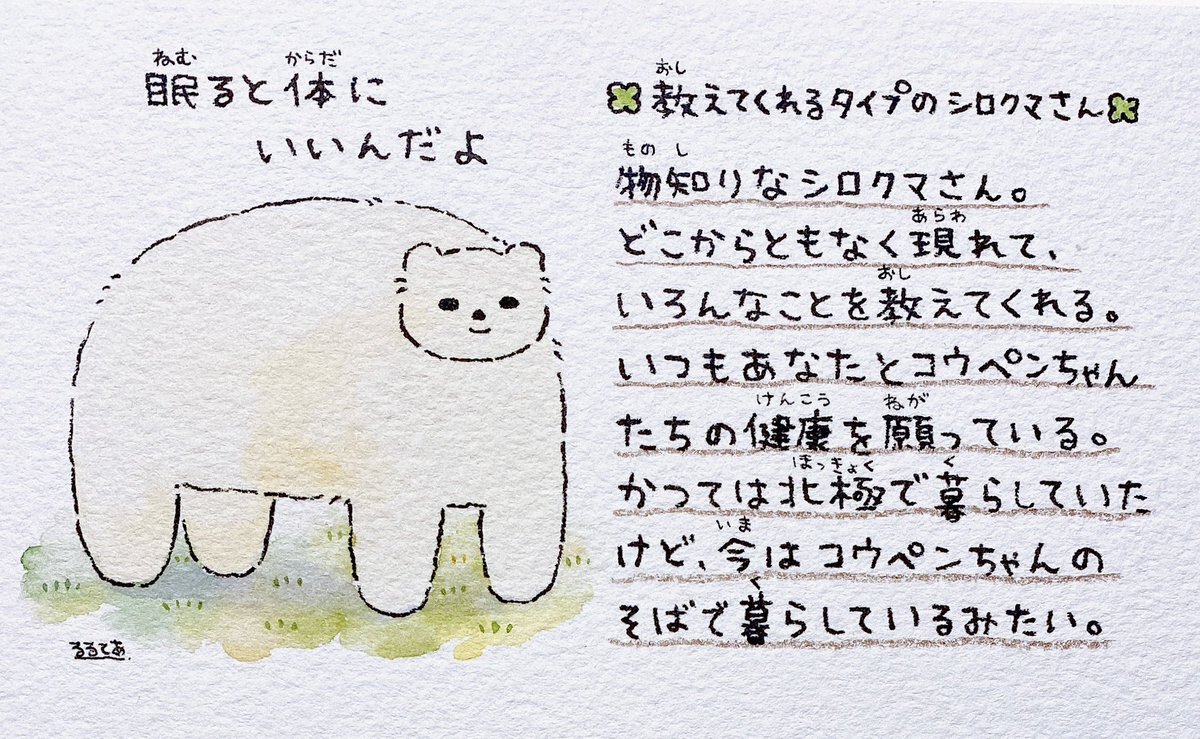 眠ると体に
いいんだよ
教えてくれるタイプのシロクマさん
物知りなシロクマさん。
どこからともなく現れて、
いろんなことを教えてくれる。
いつもあなたとコウペンちゃん
たちの健康を願っている。
かつては北極で暮らしていた
けど、今はコウペンちゃんの
そばで暮らしているみたい。
るるてあ